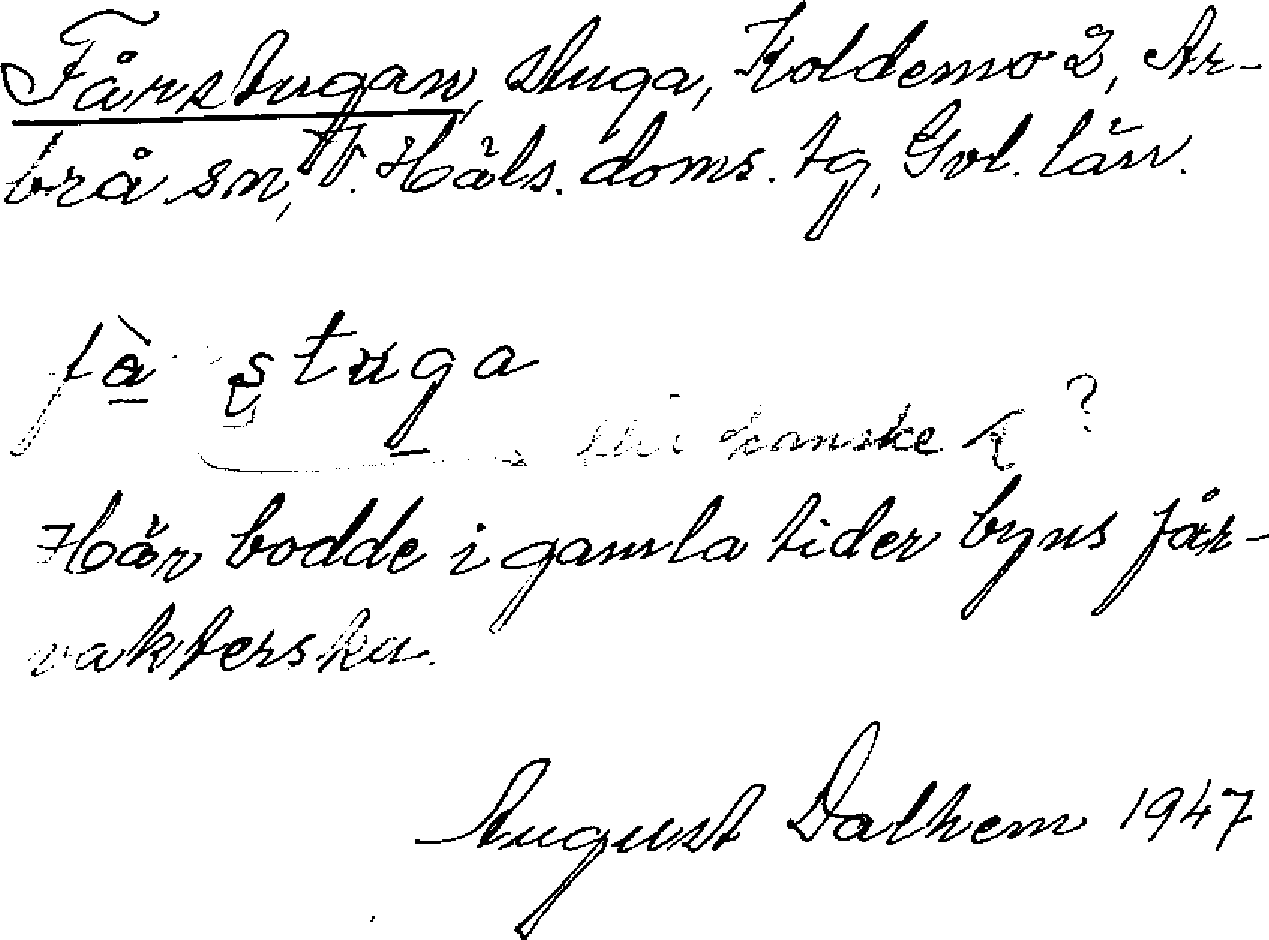 Fårstugan, stuga, Koldemo 2, Ar-
brå sn, V. Häls. doms. tg, Gvl. län.
fà ʂtuga
kanske ?
Här bodde i gamla tider byns får-
vakterska.
August Dalhem 1947